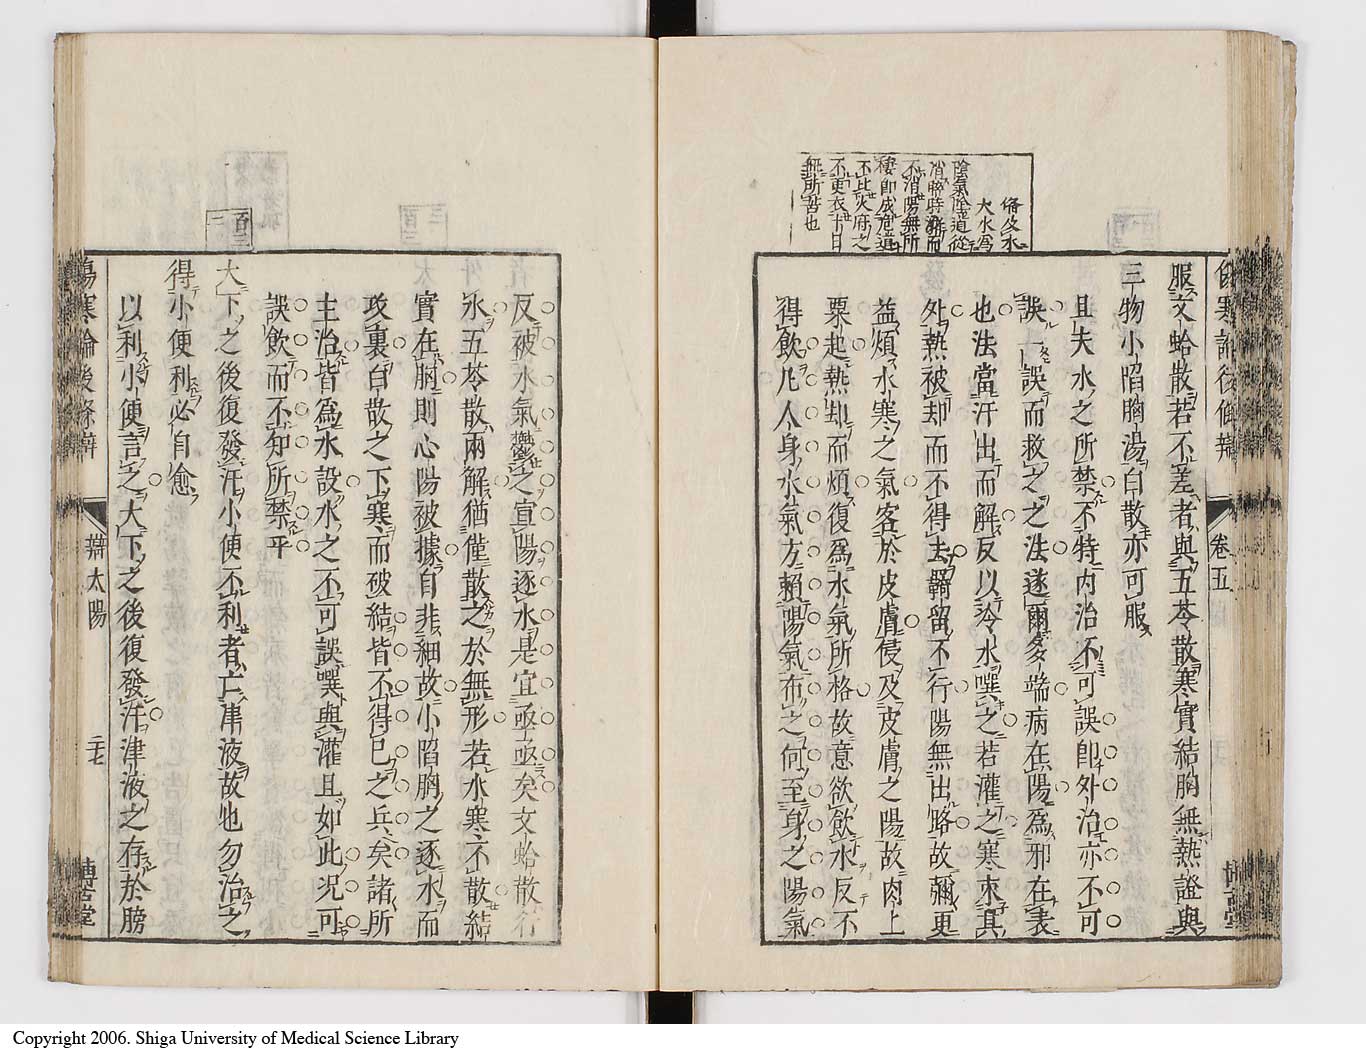 傷寒論後條辯
卷五
服文蛤散若不差者與五苓散寒實結胸無熱證與
三物小陷胸湯白散亦可服
且夫水之所禁不特內治不可誤即外治亦不可
誤一誤而救之之法遂爾多端病在陽為邪在表
也法當汗出而解反以冷水噀之若灌之寒束其
外熱被却而不得去羈留不行陽無出路故彌更
益煩水寒之氣客於皮膚侵及皮膚之陽故肉上
粟起熱却而煩復為水氣所格故意欲飲水反不
得飲凡人身水氣方賴陽氣布之何至身之陽氣
大水寫
陰氣從
不消陽無所
不更衣十日
無所苦也
反被水氣鬱之宣陽逐水是宜亟亟矣文蛤散行
水五苓散兩解猶僅散之於無形若水寒不散結
實在胸則心陽被據自非細故小陷胸之逐水而
攻裏白散之下寒而破結皆不得已之兵矣諸所
主治皆為水設水之不可誤噀與灌且如此况可
誤飲而不知所禁乎
百三
二
大下之後復發汗小便不利者亡津液故也勿治之
得小便利必自愈
以利小便言之大下之後復發汗津液之存於膀
傷寒論後條辯
辯太陽
二十七
博古堂
Copyright 2006. Shiga University of Medical Science Library